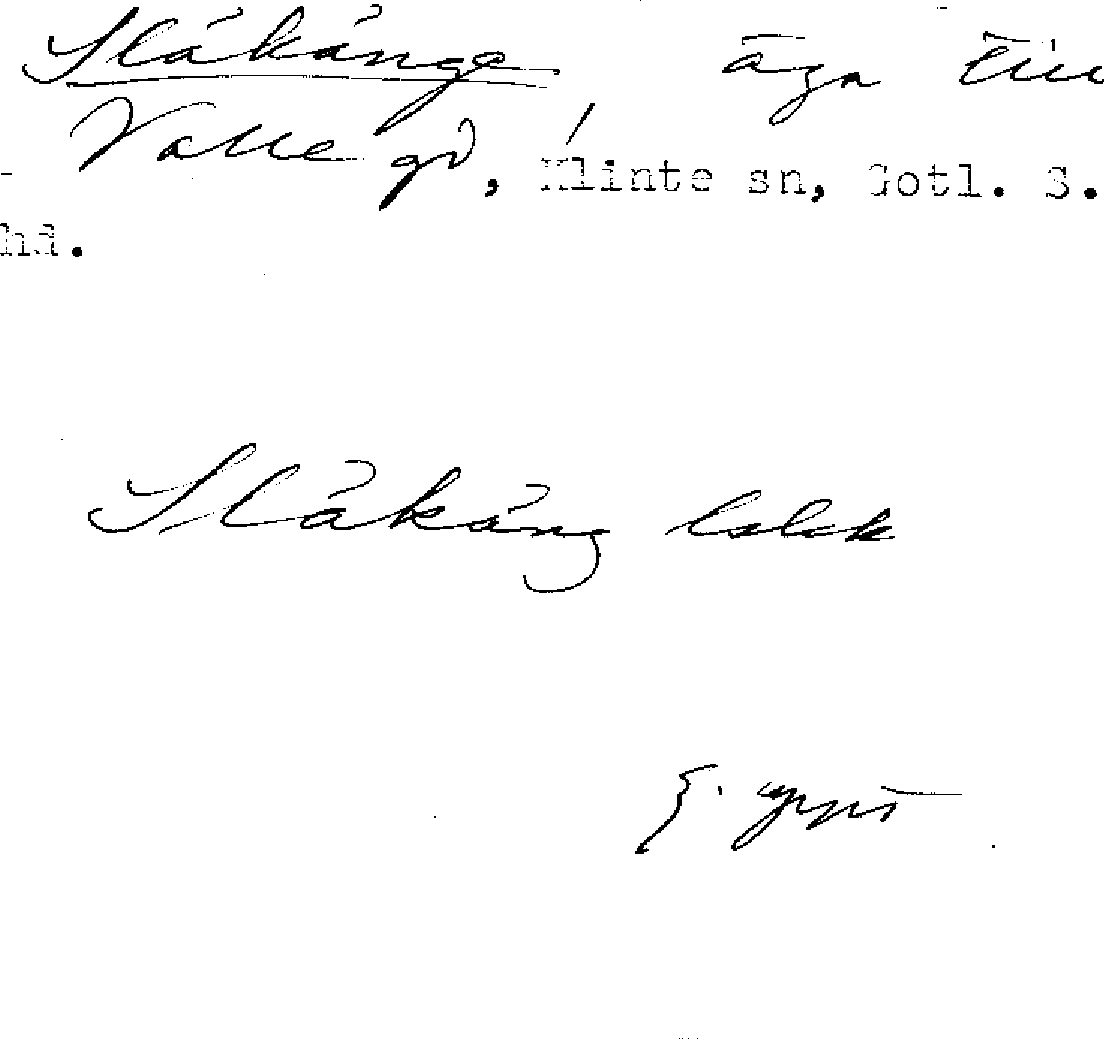 Slåkånge, äga till
Valle gd, Klinte sn, Gotl. S.
hd.
Slåkång